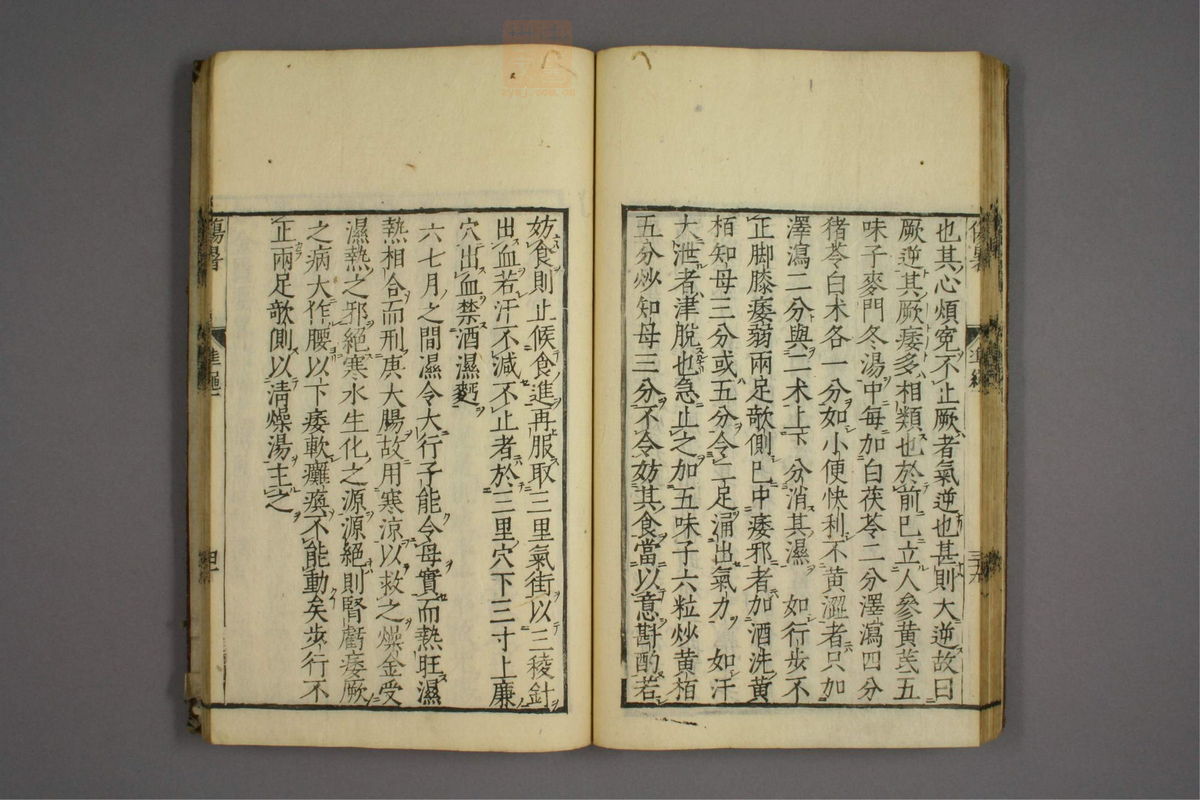 也其心煩寃不止厥者氣逆也甚則大逆故曰
厥逆其厥痿多相類也於前巳立人參黄芪五
味子麥門冬湯中每加白茯苓二分澤瀉四分
猪苓白术各一分如小便快利不黄澀者只加
澤瀉二分與二术上下分消其濕　如行步不
正脚膝痿弱兩足欹側巳中痿邪者加酒洗黄
栢知母三分或五分令二足涌出氣力　如汗
大泄者津脫也急止之加五味子六粒炒黄栢
五分炒知母三分不令妨其食當以意斟酌若
妨食則止候食進再服取三里氣街以三稜針
出血若汗不減不止者於三里穴下三寸上廉
穴出血禁酒濕麪
六七月之間濕令大行子能令母實而熱旺濕
熱相合而刑庚大腸故用寒涼以救之燥金受
濕熱之邪絕寒水生化之源源絕則腎虧痿厥
之病大作腰以下痿軟癱瘓不能動矣步行不
正兩足欹側以清燥湯主之
傷暑
準繩